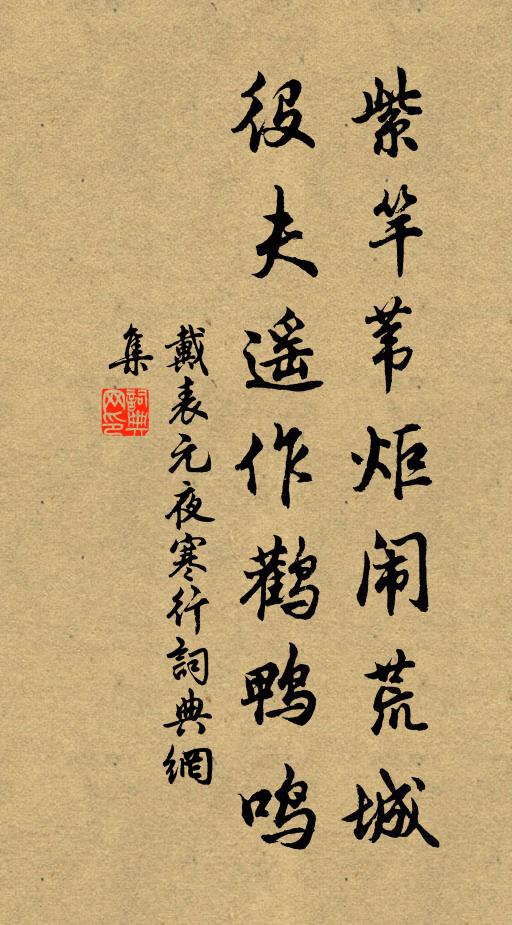 紫竿苇炬闹荒城
役夫遥作鹳鸭鸣
戴表元夜寒行詞典網
集
詞典網印